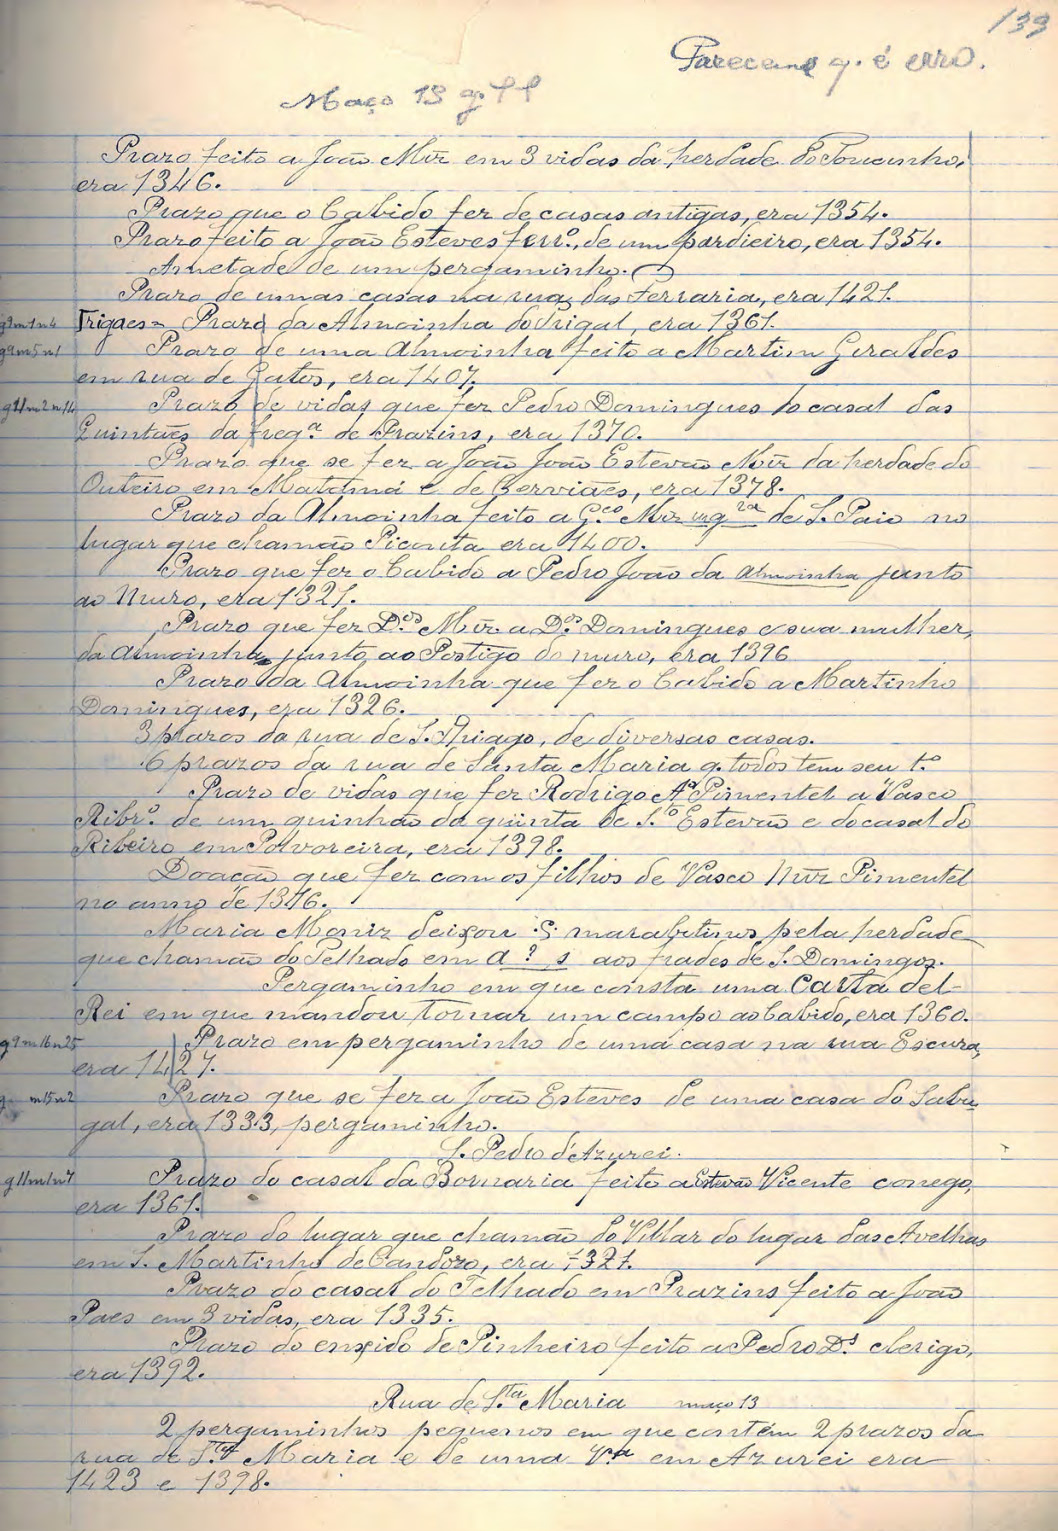 139
Pareceme q. é erro.
Maço 13 g.
Prazo feito a João Miz em 3 vidas da herdade do Toucinho,
era 1346.
Prazo que o Cabido fez de casas antigas, era 1354.
Prazo feito a João Esteves ferr.º, de um pardieiro, era 1354.
Ametade de um pergaminho.
Prazo de umas casas na rua das Ferraria, era 1421.
g9m1n4 Trigaes = Prazo da Almoinha do Trigal, era 1361.
g9m5n1 Prazo de uma Almoinha feito a Martim Geraldes
em rua de Gatos, era 1407.
g11m2n14 Prazo de vidas que fez Pedro Domingues do casal das
Quintães da freg.ª de Prazins, era 1370.
Prazo que se fez a João João Estevão Miz da herdade do
Outeiro em Matamá e de Cerviães, era 1378.
Prazo da Almoinha feito a G.co Miz de S. Paio no
lugar que chamão Piconta era 1400.
Prazo que fez o Cabido a Pedro João da Almoinha junto
ao Muro, era 1321.
Prazo que fez D.os Miz a D.os Domingues e sua mulher,
da Almoinha junto ao Postigo do muro, era 1396
Prazo da Almoinha que fez o Cabido a Martinho
Domingues, era 1326.
3 prazos da rua de S. Thiago, de diversas casas.
6 prazos da rua de Santa Maria q. todos tem seu t.º
Prazo de vidas que fez Rodrigo A.º Pimentel a Vasco
Ribr.º de um quinhão da quinta de S.to Estevão e do casal do
Ribeiro em Polvoreira, era 1398.
Doação que fez com os filhos de Vasco Miz Pimentel
no anno de 1376.
Maria Moniz deixou .S. marabitinos pela herdade
que chamão do Telhado em a ? s aos frades de S. Domingos.
Pergaminho em que consta uma Carta del-
Rei em que mandou tornar um campo ao Cabido, era 1360.
g9m16n25 Prazo em pergaminho de uma casa na rua Escura,
era 1427.
g. m15n2 Prazo que se fez a João Esteves de uma casa do Sabu-
gal, era 1333, pergaminho.
S. Pedro d'Azurei.
g11m1n7 Prazo do casal da Bornaria feito a Estevão Vicente conego,
era 1361.
Prazo do lugar que chamão do Villar do lugar das Avelhas
em S. Martinho de Candozo, era 1321.
Prazo do casal do Telhado em Prazins feito a João
Paes em 3 vidas, era 1335.
Prazo do enxido de Pinheiro feito a Pedro D.s clerigo,
era 1392.
Rua de S.ta Maria maço 13
2 pergaminhos pequenos em que contém 2 prazos da
rua de S.ta Maria e de uma V.a em Azurei era
1423 e 1398.